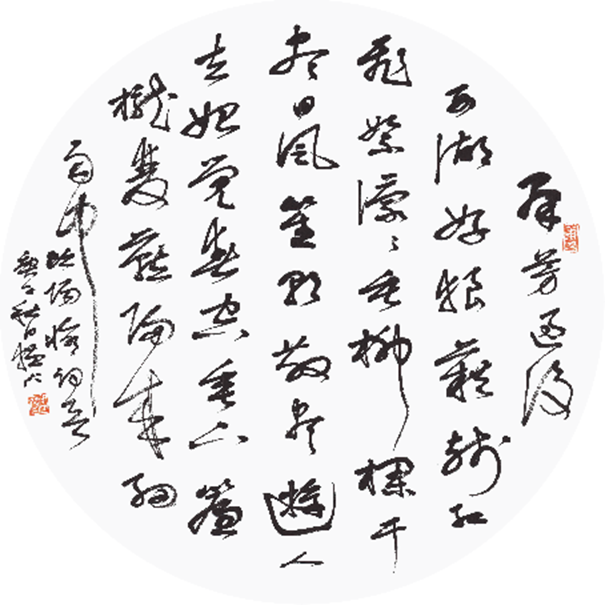 群芳過後
西湖好狼藉殘紅
飛絮濛々垂柳欄干
盡日風笙歌散盡遊人
去始覺春空垂下簾
櫳雙燕歸來細
雨中
欧陽脩詞